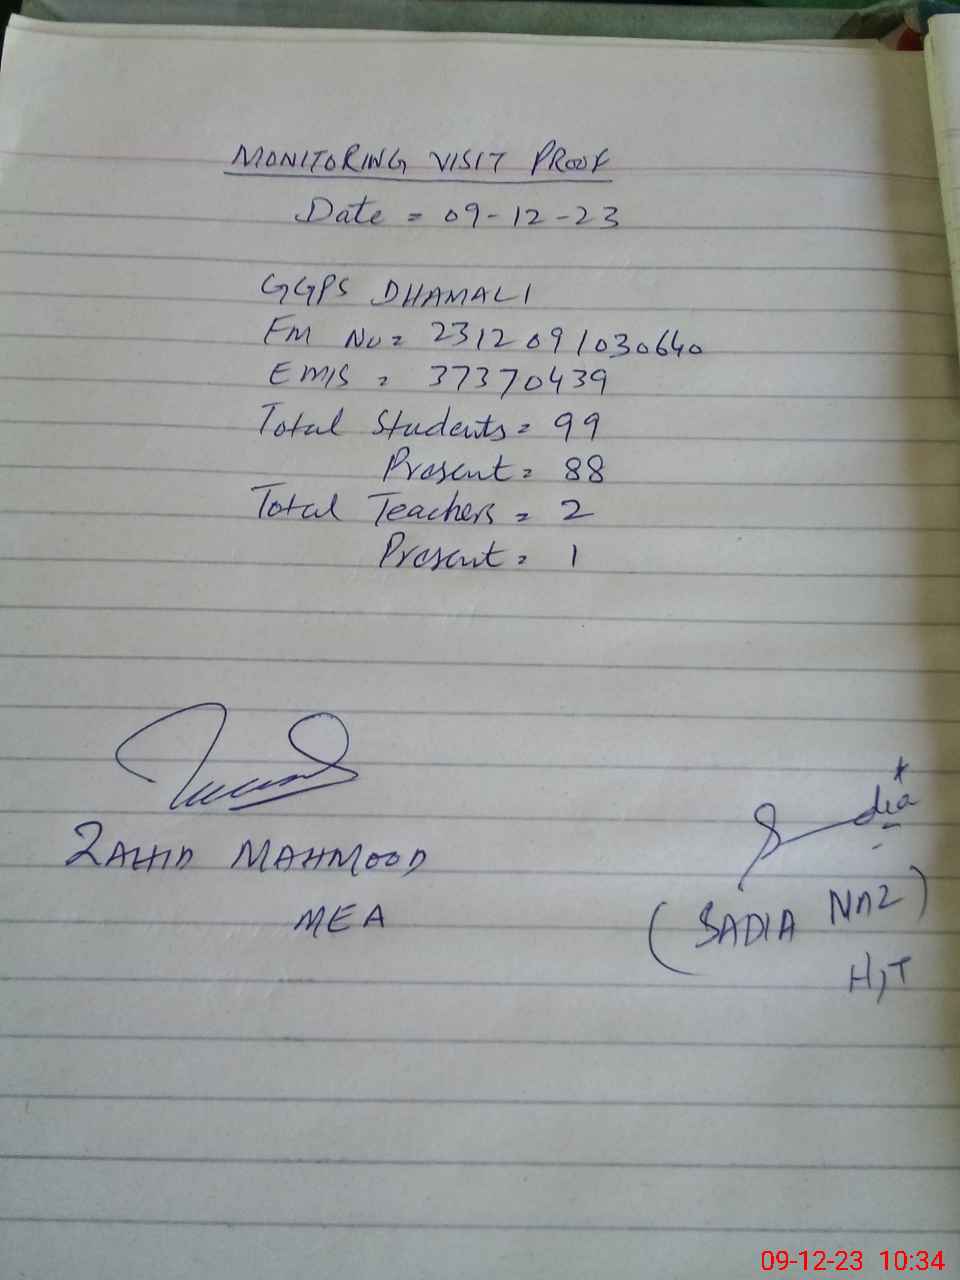 MONITORING VISIT PROOF
Date = 09-12-23
GGPS DHAMALI
EM No = 2312091030640
EMIS = 37370439
Total Students = 99
Present = 88
Total Teachers = 2
Present = 1
ZAHID MAHMOOD
MEA
Sadia
(SADIA NAZ)
H,T
09-12-23 10:34